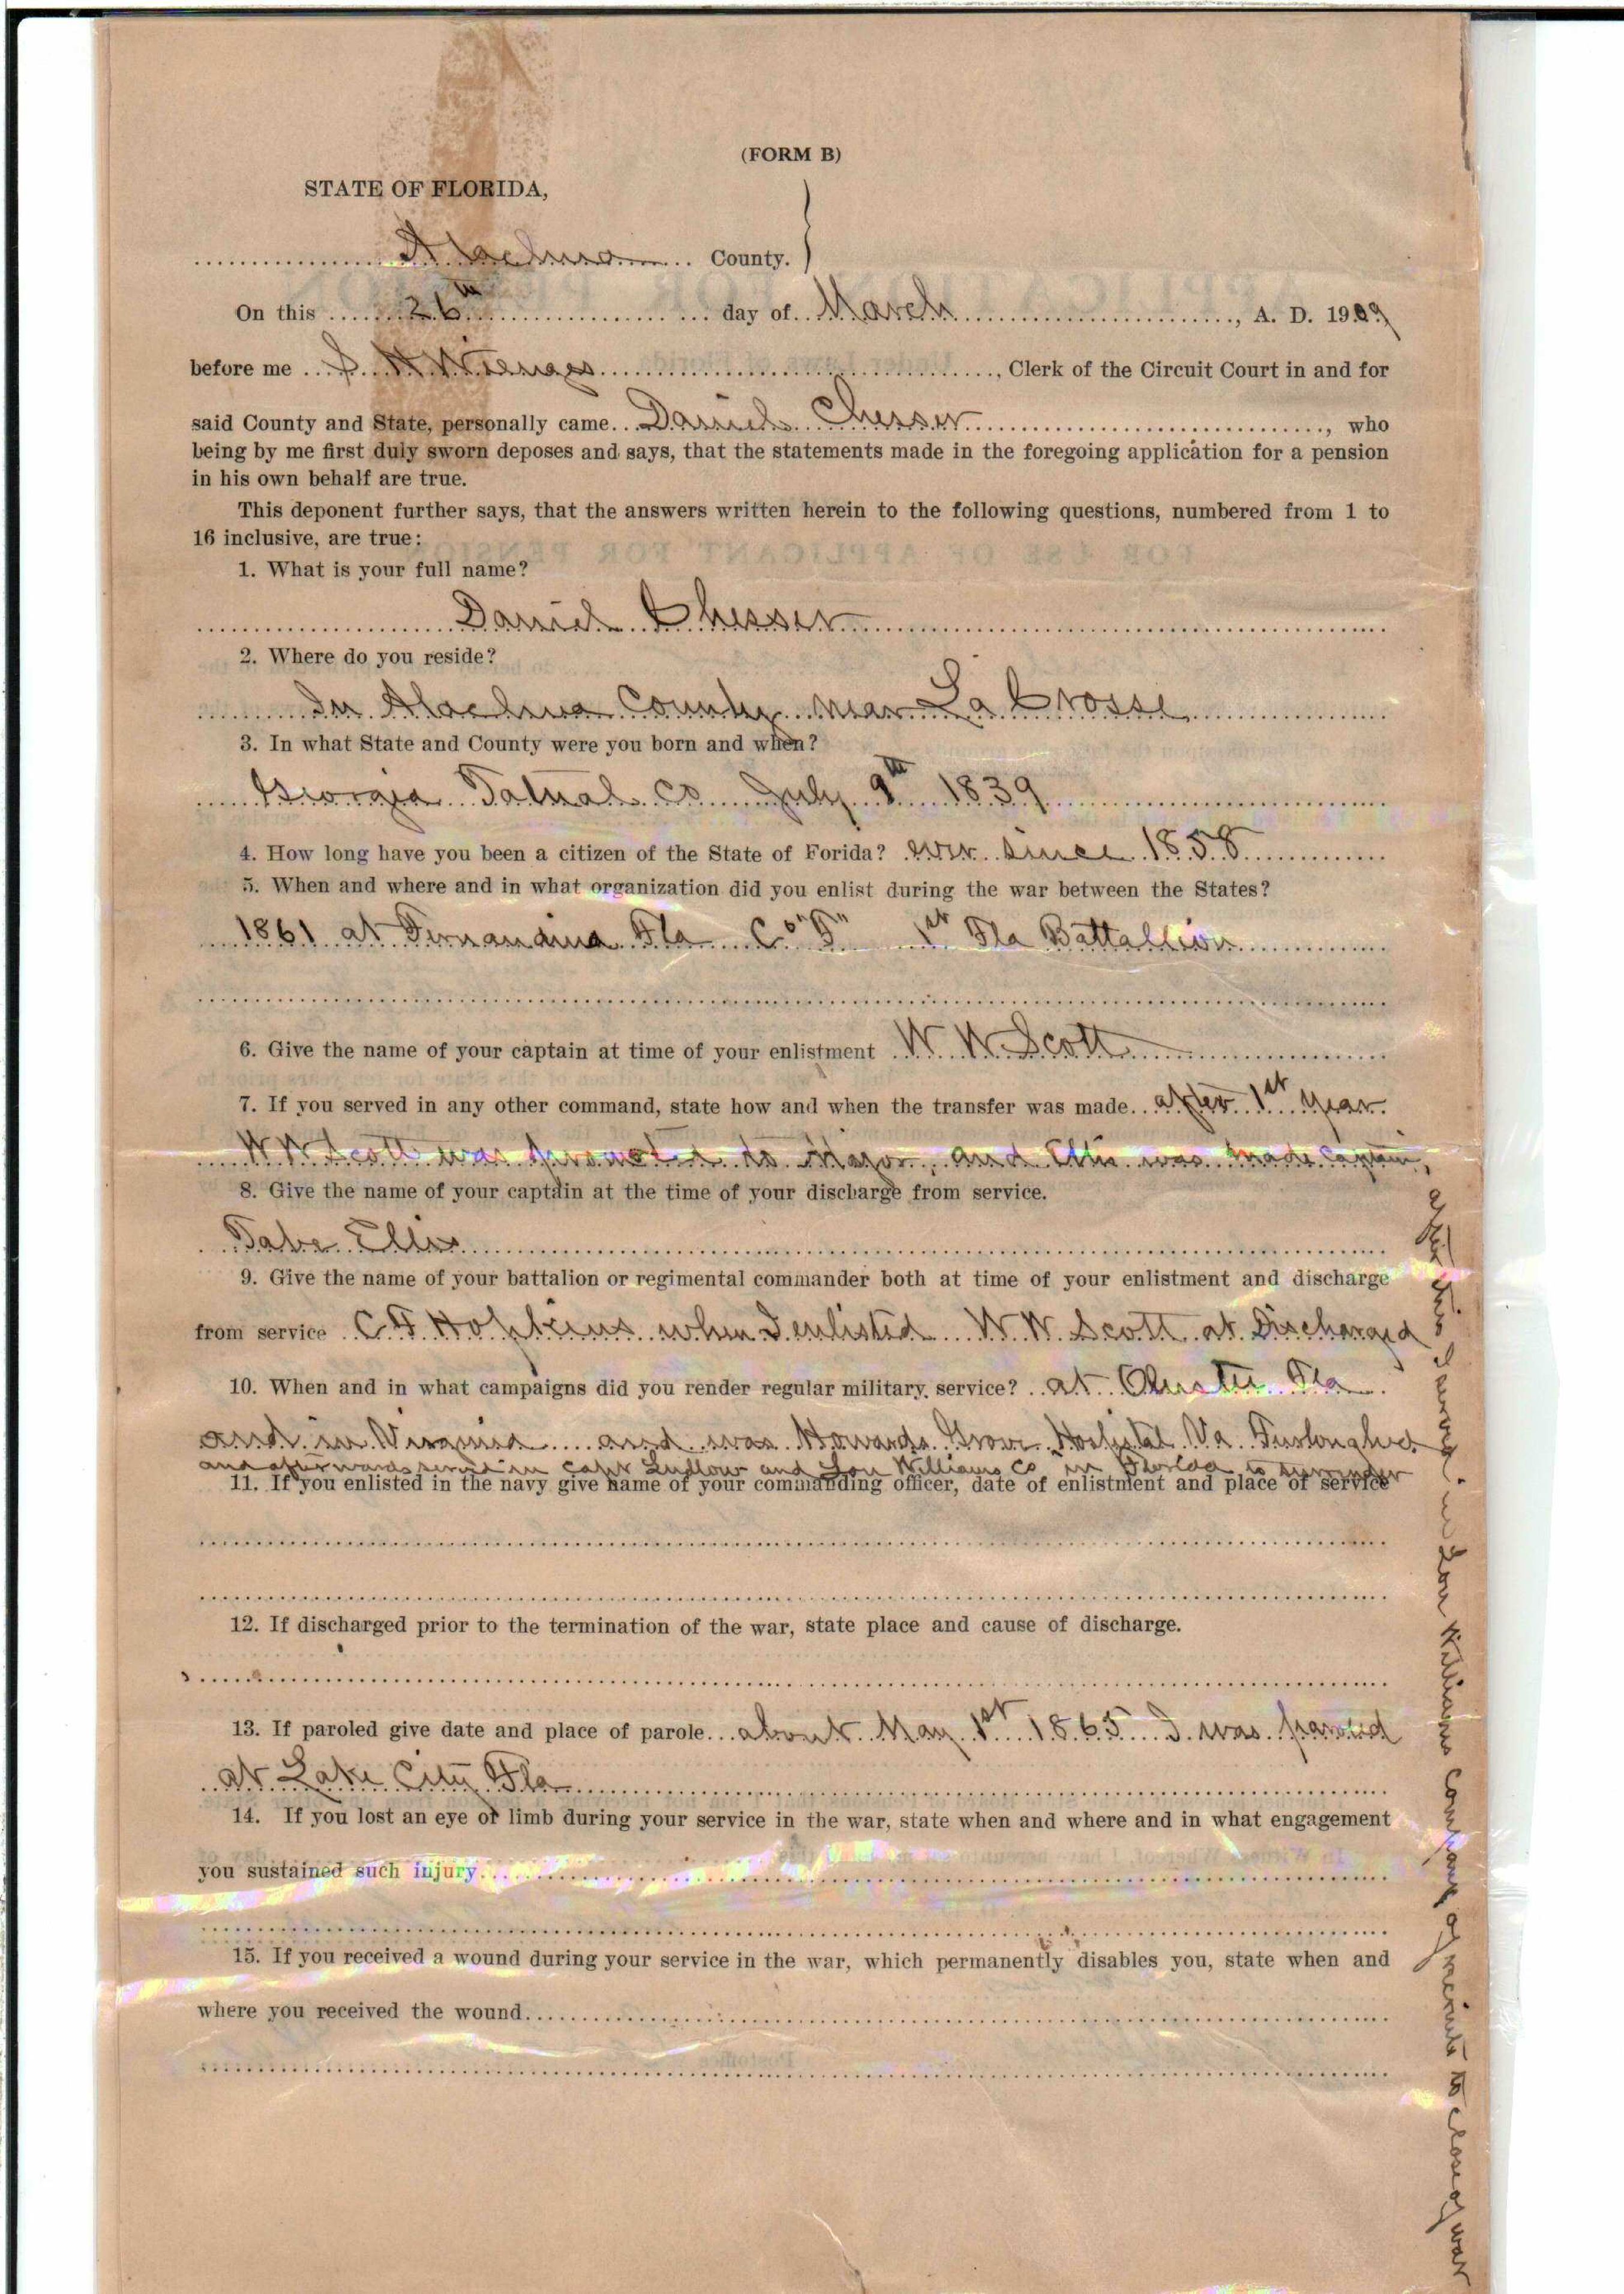 (FORM B)
STATE OF FLORIDA,
Alachua County.
On this 26th day of March, A. D. 1909
before me S. H. Wienges, Clerk of the Circuit Court in and for
said County and State, personally came Daniel Chesser, who
being by me first duly sworn deposes and says, that the statements made in the foregoing application for a pension
in his own behalf are true.
This deponent further says, that the answers written herein to the following questions, numbered from 1 to
16 inclusive, are true:
1. What is your full name?
Daniel Chesser
2. Where do you reside?
In Alachua County near La Crosse
3. In what State and County were you born and when?
Georgia Tatnal Co July 9th 1839
4. How long have you been a citizen of the State of Forida? ever since 1858
5. When and where and in what organization did you enlist during the war between the States?
1861 at Fernandina Fla Co "F" 1st Fla Battallion
6. Give the name of your captain at time of your enlistment W W Scott
7. If you served in any other command, state how and when the transfer was made after 1st year
W W Scott was promoted to Major, and Ellis was made Captain,
8. Give the name of your captain at the time of your discharge from service.
Tabe Ellis
9. Give the name of your battalion or regimental commander both at time of your enlistment and discharge
from service C F Hopkins when I enlisted W. W. Scott at Discharged
10. When and in what campaigns did you render regular military service? at Olustee Fla
and in Virginia and was Howards Grove Hospital Va. Furloughed
and afterwards served in Capt Ludlow and Lou Williams Co in Florida to surrender
11. If you enlisted in the navy give name of your commanding officer, date of enlistment and place of service
12. If discharged prior to the termination of the war, state place and cause of discharge.
13. If paroled give date and place of parole about May 1st 1865 I was paroled
at Lake City Fla
14. If you lost an eye or limb during your service in the war, state when and where and in what engagement
you sustained such injury
15. If you received a wound during your service in the war, which permanently disables you, state when and
where you received the wound
I served in Lou Williams Company of recruits to close of war